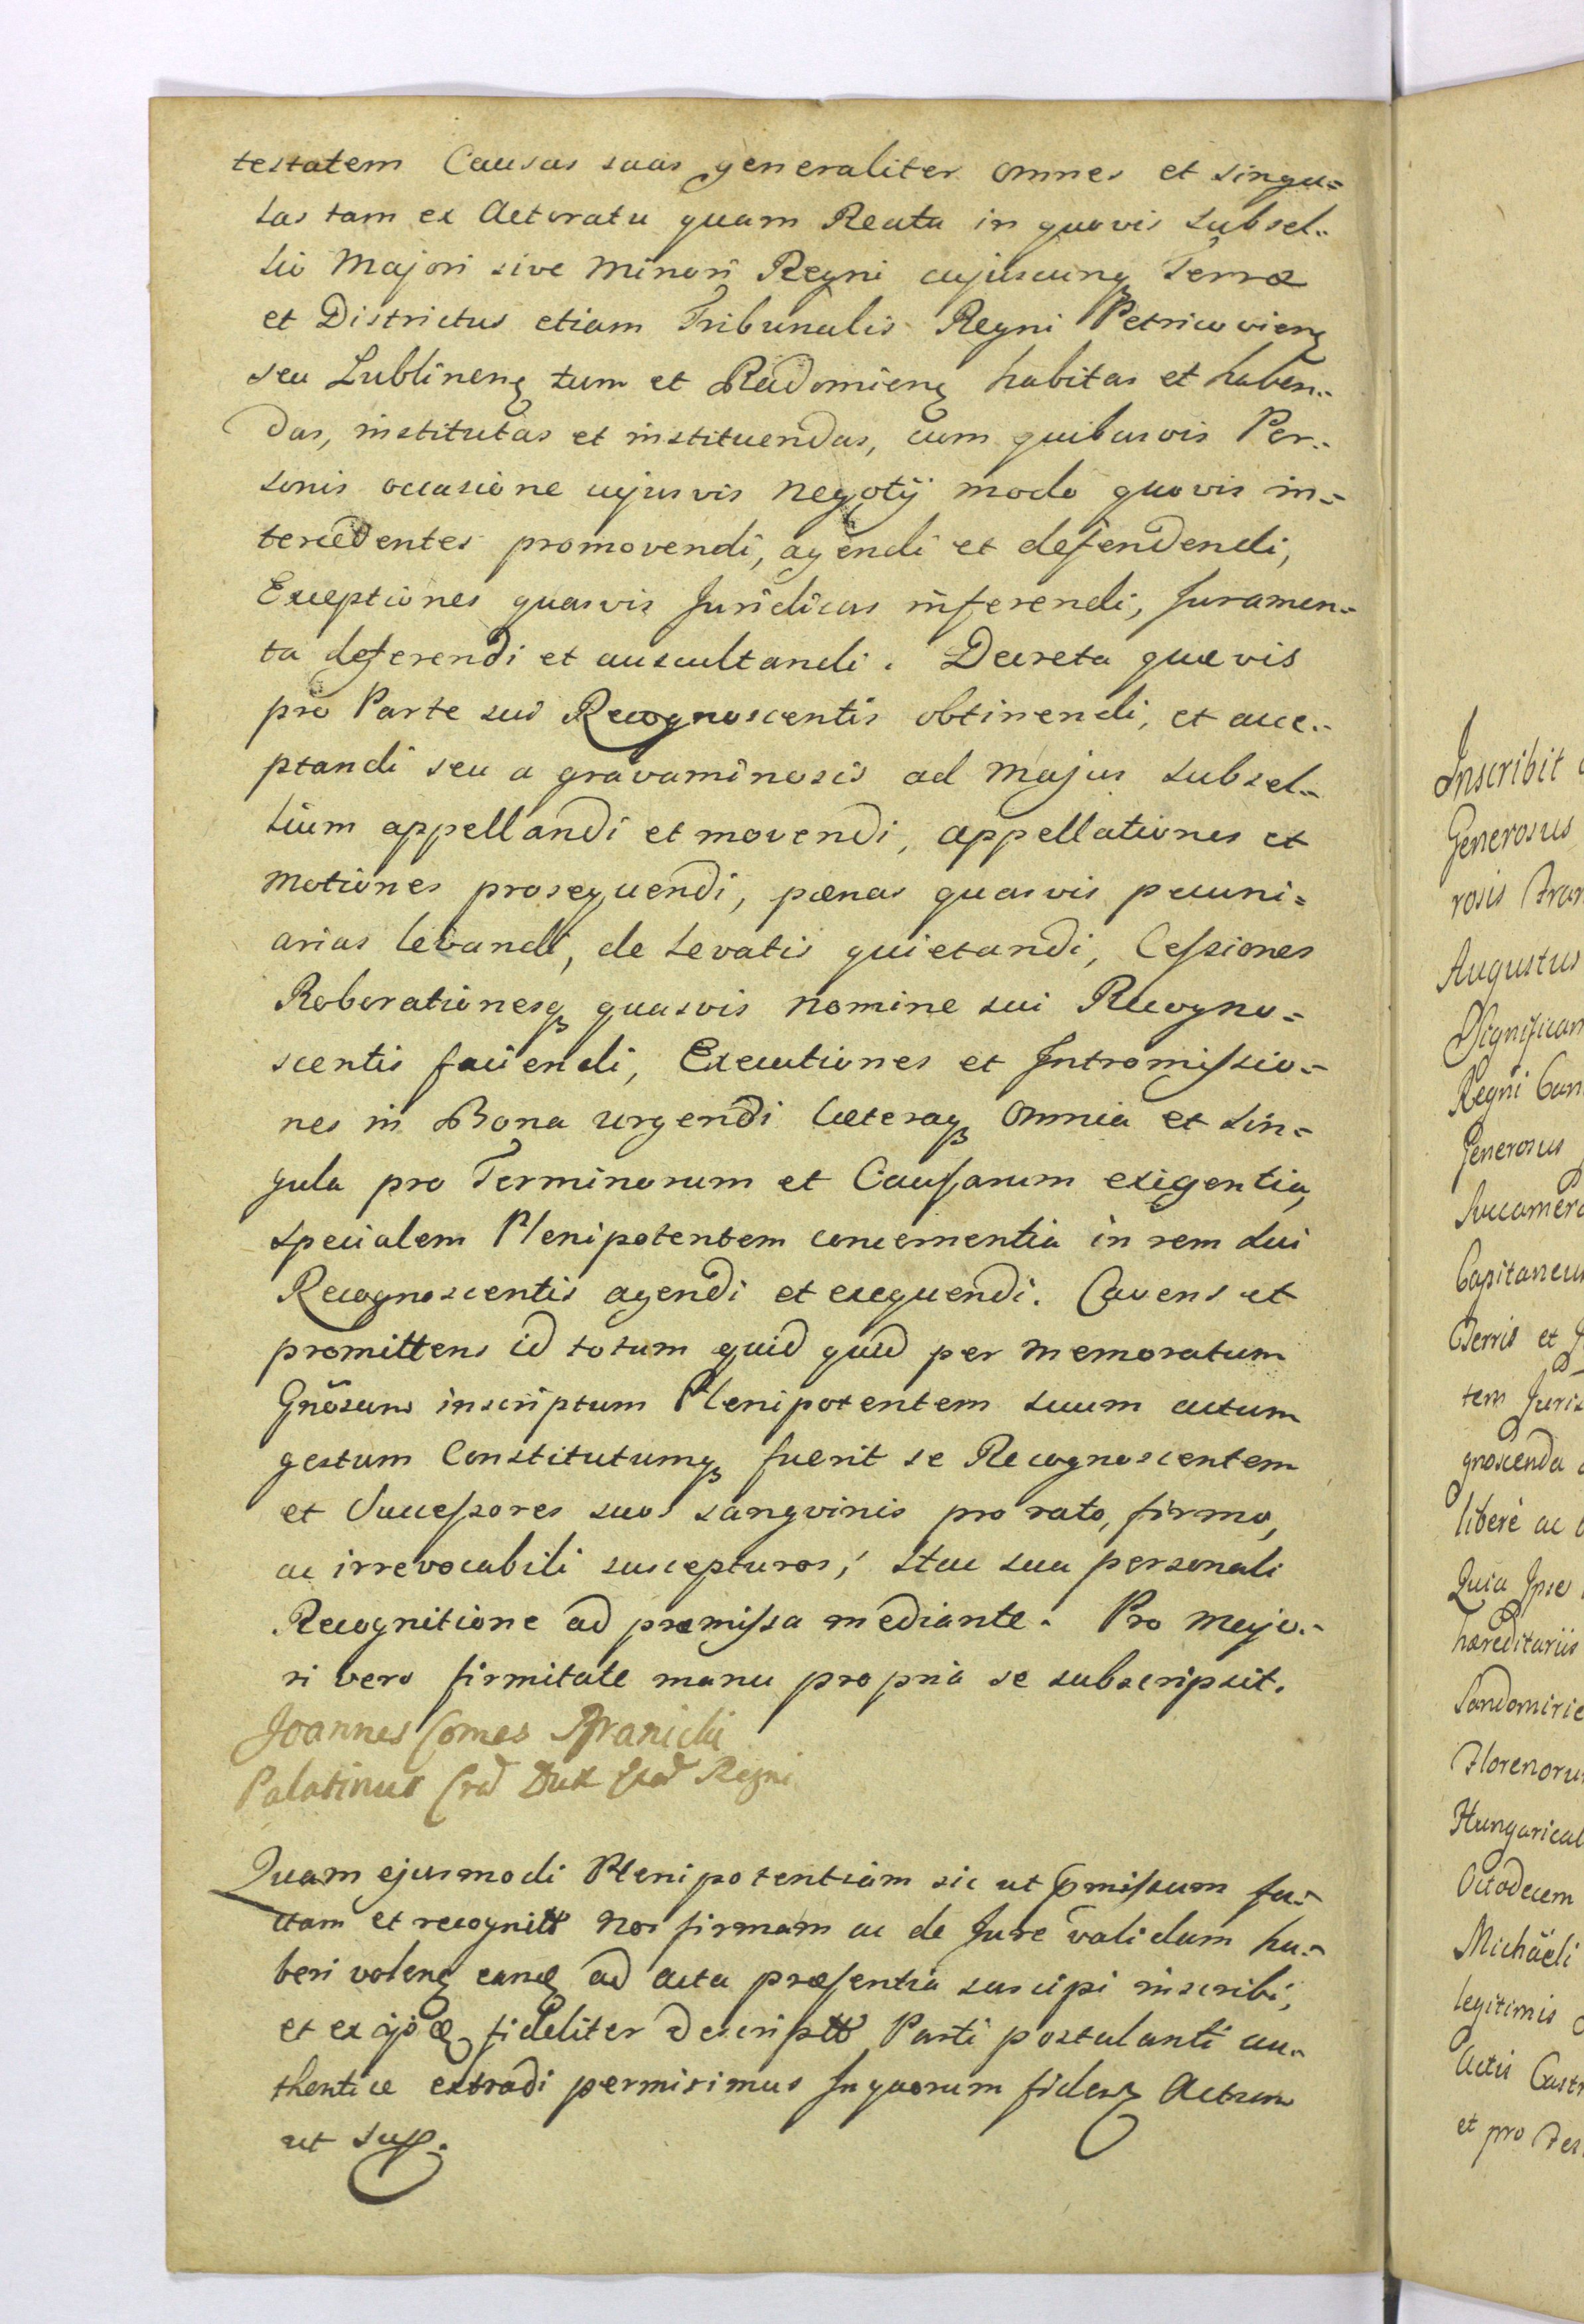 testatem Causas suas generaliter omnes et singu=
las tam ex Actoratu quam Reatu in quovis subsel=
lio Majori sive Minori Regni cujuscunqꝫ Terræ
et Districtus etiam Tribunalis Regni Petricovienꝫ
seu Lublinenꝫ tum et Radomienꝫ habitas et haben=
das, institutas et instituendas, cum quibusvis Per=
sonis occasione cujusvis negotij modo quovis in=
tercedentes promovendi, agendi et defendendi,
Exceptiones quasvis Juridicas inferendi, Juramen=
ta deferendi et auscultandi. Decreta quævis
pro Parte sui Recognoscentis obtinendi, et acce=
ptandi seu a gravaminosis ad Majus subsel=
lium appellandi et movendi, appellationes et
motiones prosequendi, pœnas quasvis pecuni=
arias levandi, de levatis quietandi, Cessiones
Roborationesqꝫ quasvis nomine sui Recogno=
scentis faciendi, Executiones et Intromissio=
nes in Bona urgendi Cæteraqꝫ omnia et sin=
gula pro Terminorum et Causarum exigentia,
specialem Plenipotentem concernentia in rem sui
Recognoscentis agendi et exequendi. Cavens et
promittens id totum quid quid per memoratum
Gnõsum inscriptum Plenipotentem suum actum
gestum Constitutumqꝫ fuerit se Recognoscentem
et Successores suos sangvinis pro rato, firmo,
ac irrevocabili suscepturos; Hac sua personali
Recognitione ad præmissa mediante. Pro Majo=
ri vero firmitate manu propria se subscripsit.
Joannes Comes Branicki
Palatinus Crac̄ Dux Exer̄ Regni
Quam ejusmodi Plenipotentiam sic ut p̄missum fa=
ctam et recognitt Nos firmam ac de Jure validam ha=
beri volenꝫ eanꝫ ad acta præsentia suscipi inscribi,
et ex fideliter descriptt Parti postulanti au=
thentice extradi permisimus In quorum fidem Actum
ut sup.
Inscribit
Generosus
rosis Fran
Augustus
Regni Cam
Generosus
Succamera
Capitaneus
Terris et
tem Juris
gnoscenda
libere ac
Quia Ipse
hæreditariis
Sandomirie
Florenorum
Hungarical
Octodecem
Michaëli
legitimis
Actis Castr
et pro